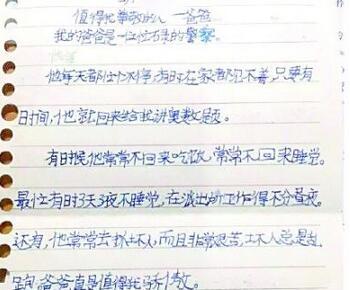 值得我尊敬的人—爸爸
我的爸爸是一位优秀的警察。
他每天都忙不停,有时在家都见不着,只要有
时间,他就回来给我讲奥数题。
有时候他常常不回来吃饭,常常不回来睡觉。
最忙有时3天3夜不睡觉,在派出所工作得不分昼夜。
还有,他常常去抓坏人,而且非常艰苦,坏人总是乱
跑,爸爸真是值得我骄傲。